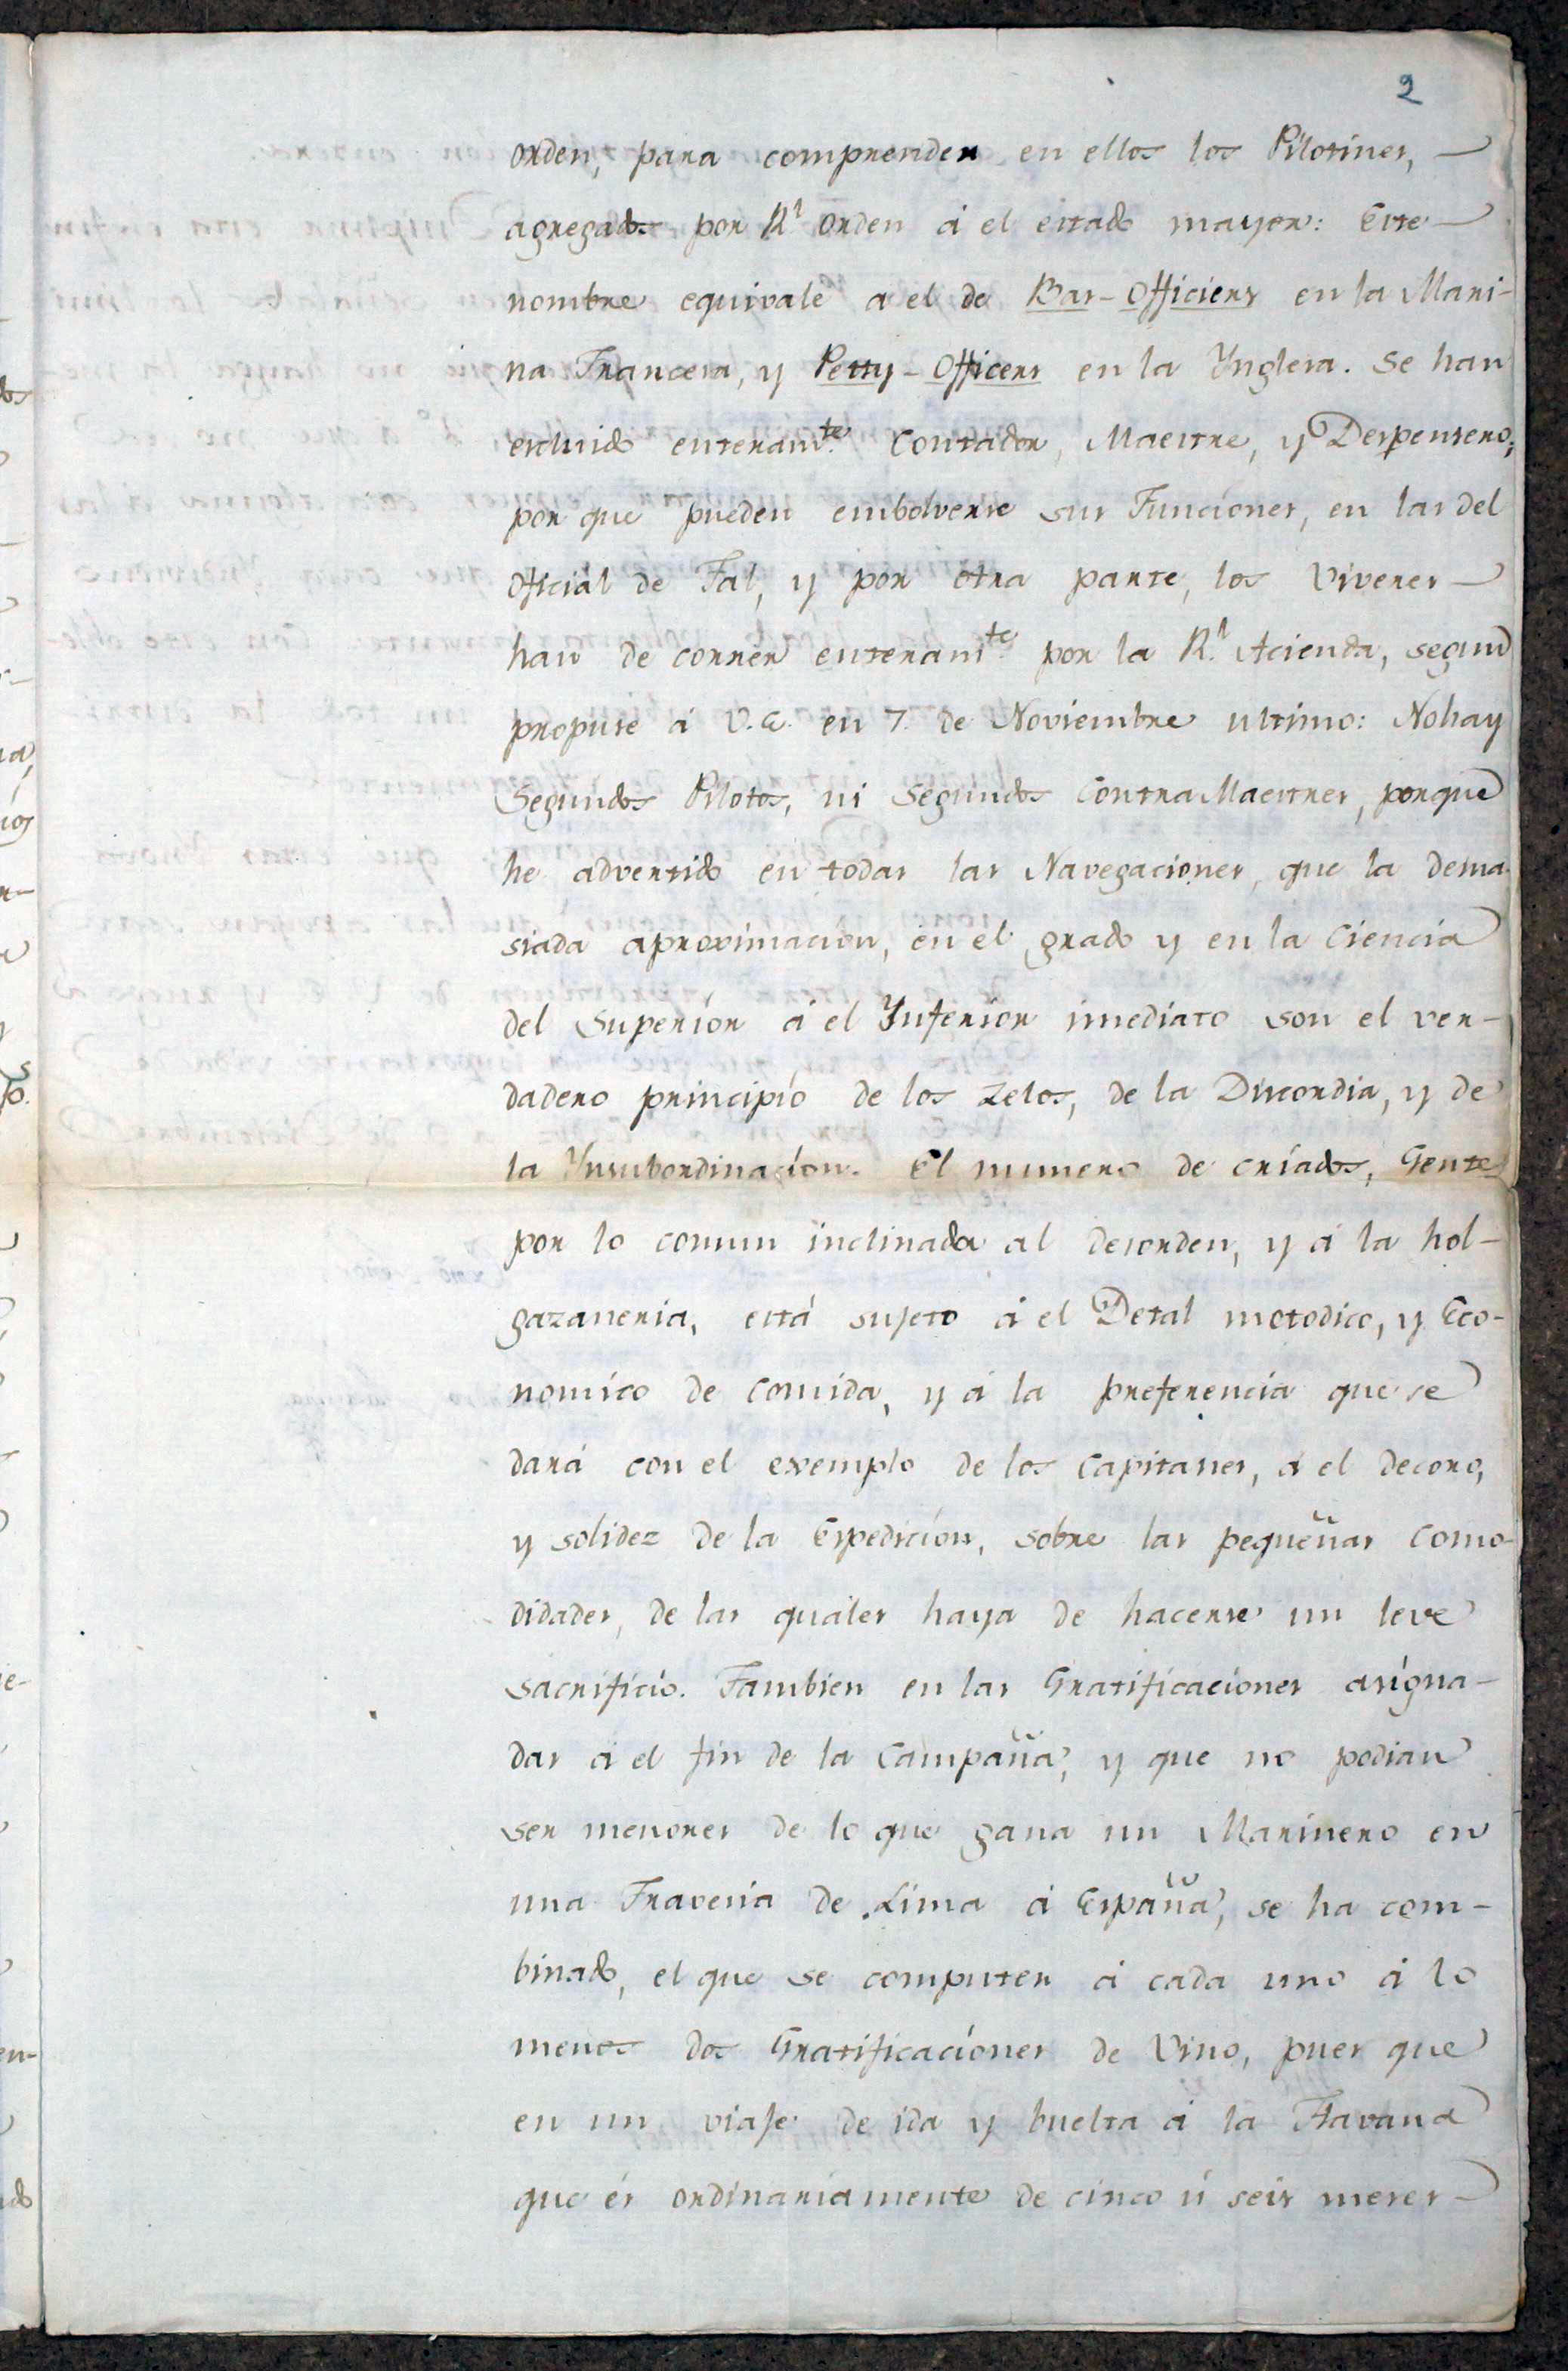 2
orden, para comprender en ellos los Pilotines,
agregados por Rl orden á el estado mayor: Este
nombre equivale a el de Bas-Officiers en la Mari-
na Francesa, y Petty-Officers en la Ynglesa. Se han
escluido enteramte. Contador, Maestre, y Despensero;
por que pueden embolverse sus Funciones, en las del
Oficial de Tal, y por otra parte, los Viveres
han de correr enteramte. por la Rl. Acienda, segun
propuse á V.E. en 7. de Noviembre ultimo: No hay
Segundos Pilotos, ni Segundos ContraMaestres, porque
he advertido en todas las Navegaciones, que la dema-
siada aproximacion, en el grado y en la Ciencia
del Superior á el Ynferior imediato son el ver-
dadero principio de los zelos, de la Discordia, y de
la Ynsubordinacion. El numero de criados, Gente
por lo comun inclinada al desorden, y á la hol-
gazaneria, está sujeto á el Detal metodico, y Eco-
nomico de Comida, y á la preferencia que se
dará con el exemplo de los Capitanes, á el decoro,
y solidez de la Espedicion, sobre las pequeñas como-
didades, de las quales haya de hacerse un leve
sacrificio. Tambien en las Gratificaciones asigna-
das á el fin de la Campaña, y que no podian
ser menores de lo que gana un Marinero en
una Travesia de Lima á España, se ha com-
binado, el que se computen á cada uno á lo
menos dos Gratificaciones de Vino, pues que
en un viaje de ida y buelta á la Havana
que és ordinariamente de cinco ú seis meses